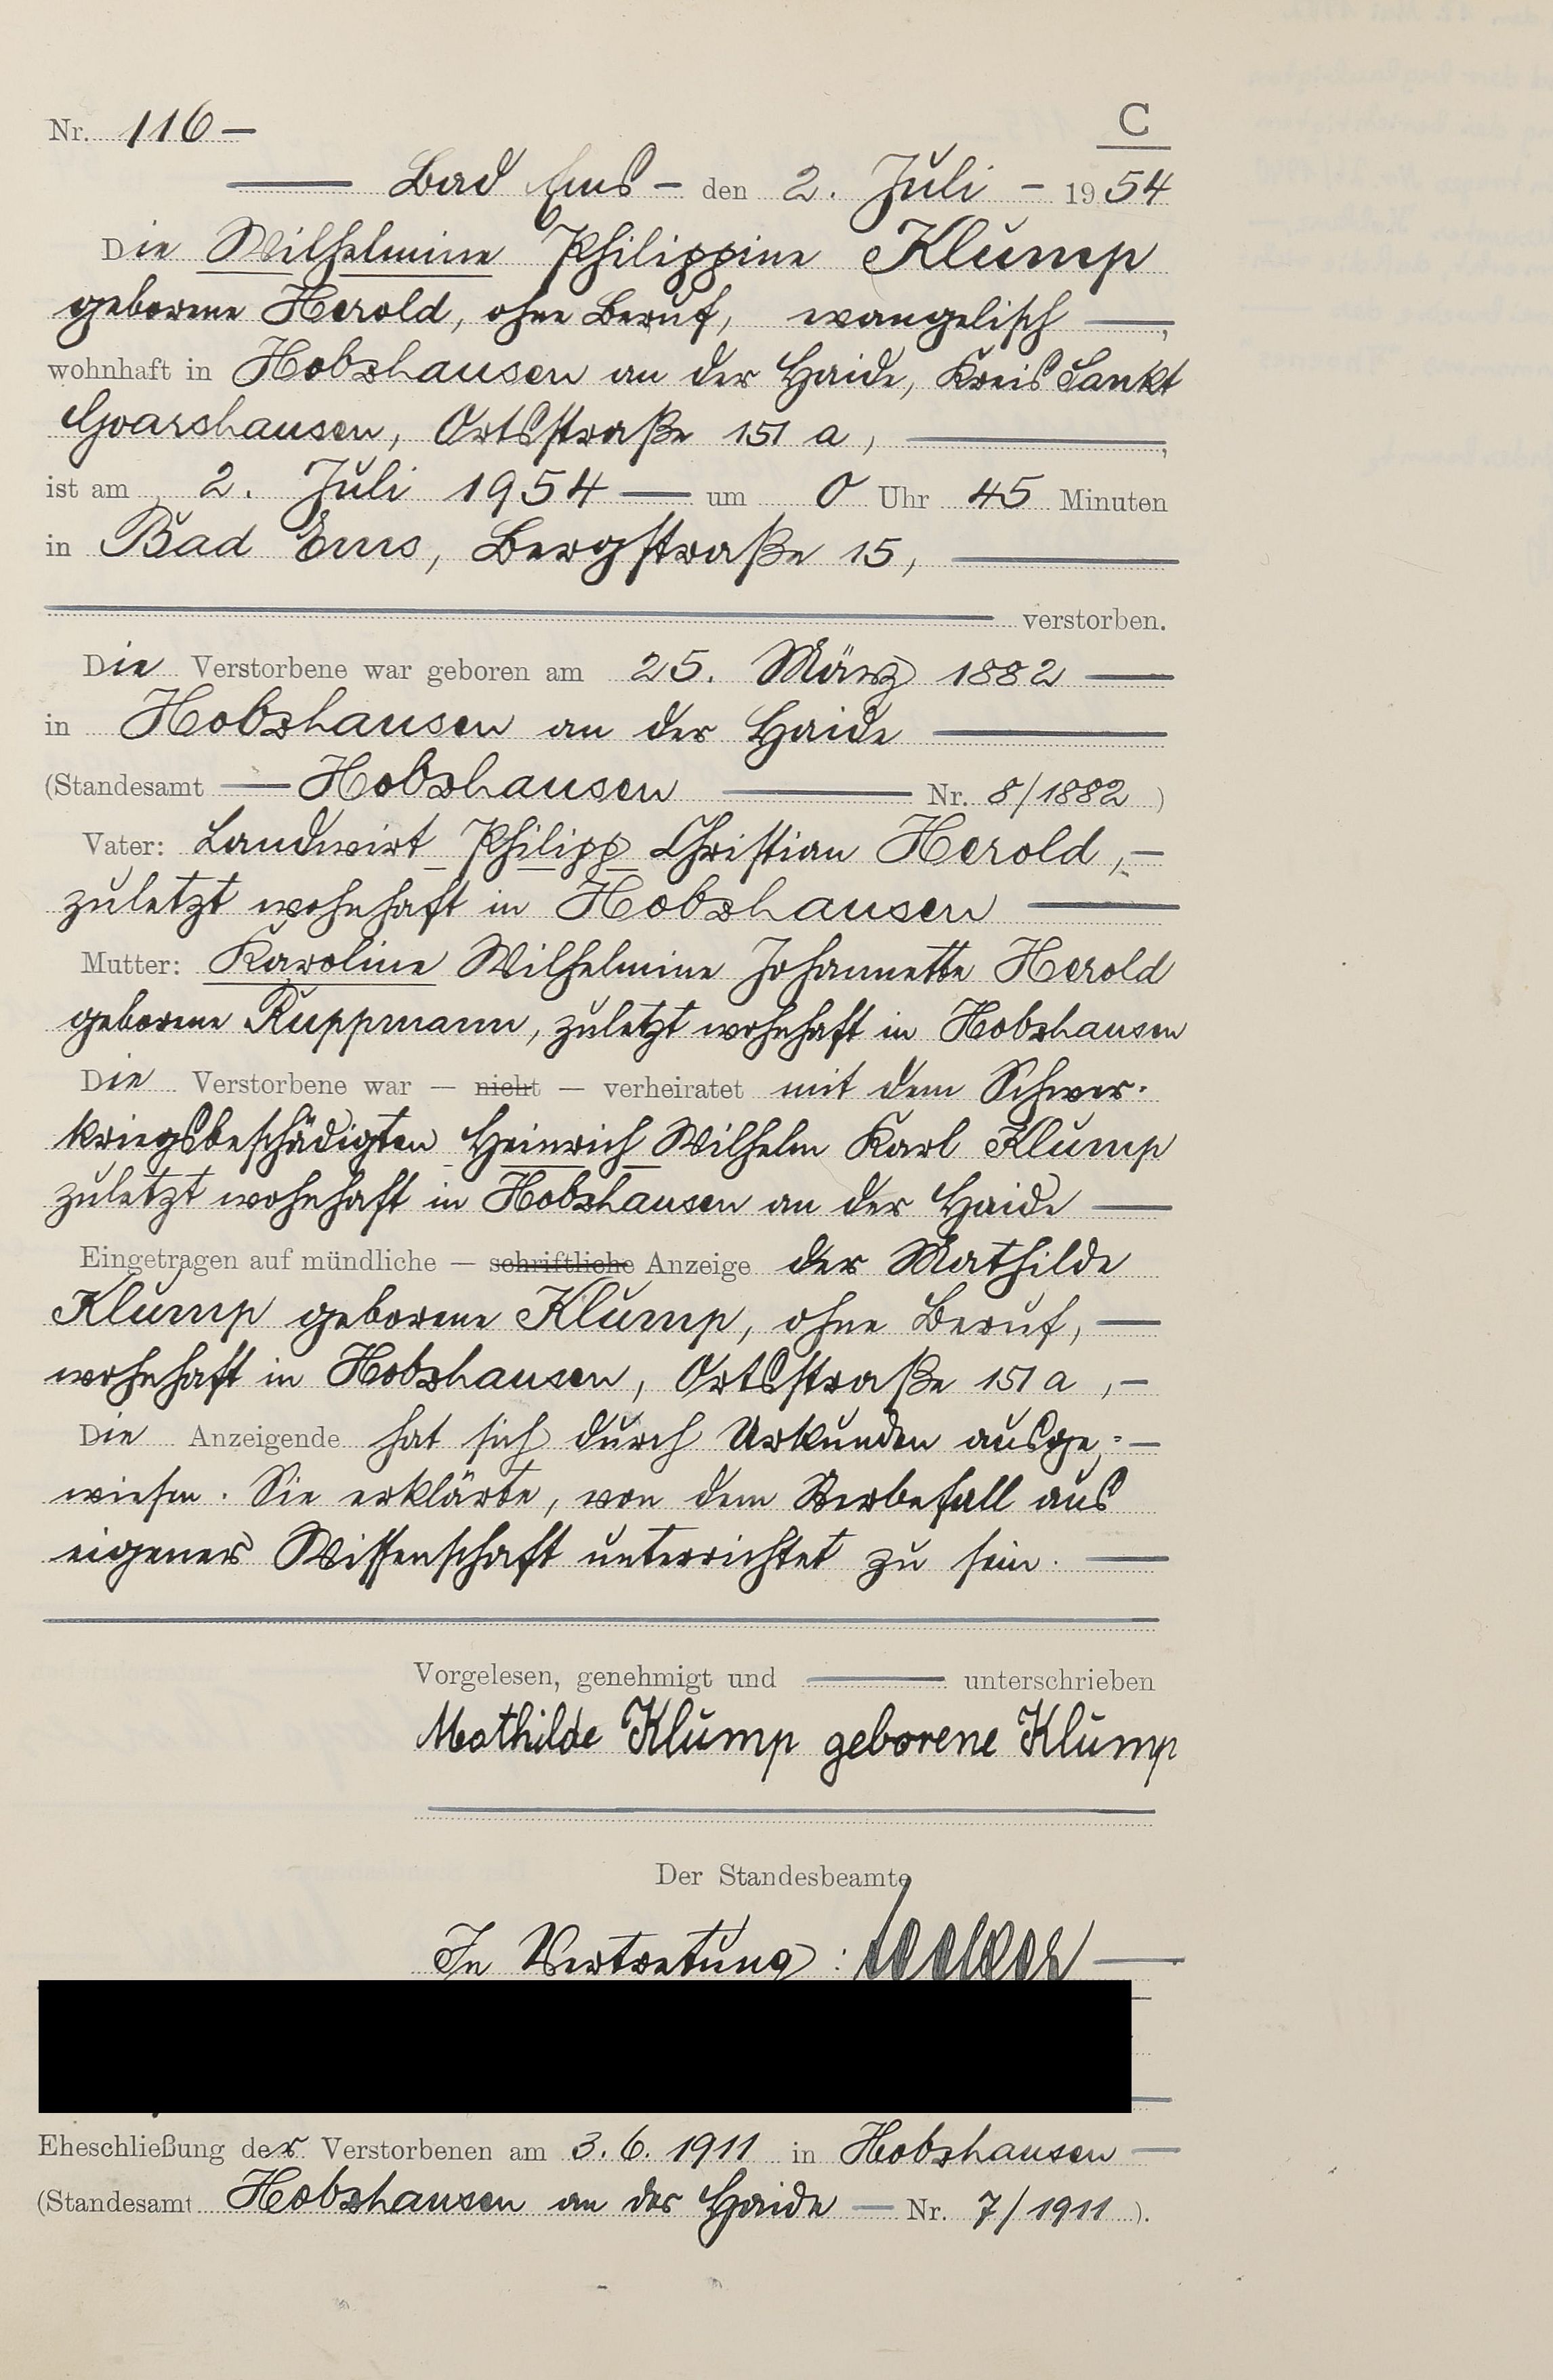 Nr. 116 —
C
— Bad Ems — den 2. Juli — 1954
Die Wilhelmine Philippine Klump
geborene Herold, ohne Beruf, evangelisch —,
wohnhaft in Holzhausen an der Haide, Kreis Sankt
Goarshausen, Ortsstraße 151 a, —,
ist am 2. Juli 1954 — um 0 Uhr 45 Minuten
in Bad Ems, Bergstraße 15, —
— verstorben.
Die Verstorbene war geboren am 25. März 1882 —
in Holzhausen an der Haide —
(Standesamt — Holzhausen — Nr. 8/1882)
Vater: Landwirt Philipp Christian Herold, —
zuletzt wohnhaft in Holzhausen —
Mutter: Karoline Wilhelmine Johannette Herold
geborene Ruppmann, zuletzt wohnhaft in Holzhausen
Die Verstorbene war — nicht — verheiratet mit dem Schwer-
kriegsbeschädigten Heinrich Wilhelm Karl Klump
zuletzt wohnhaft in Holzhausen an der Haide —
Eingetragen auf mündliche — schriftliche Anzeige der Mathilde
Klump geborene Klump, ohne Beruf, —
wohnhaft in Holzhausen, Ortsstraße 151 a, —
Die Anzeigende hat sich durch Urkunden ausge= —
wiesen. Sie erklärte, von dem Sterbefall aus
eigener Wissenschaft unterrichtet zu sein. —
Vorgelesen, genehmigt und — unterschrieben
Mathilde Klump geborene Klump
Der Standesbeamte
In Vertretung:
Eheschließung der Verstorbenen am 3.6.1911 in Holzhausen —
(Standesamt Holzhausen an der Haide — Nr. 7/1911).